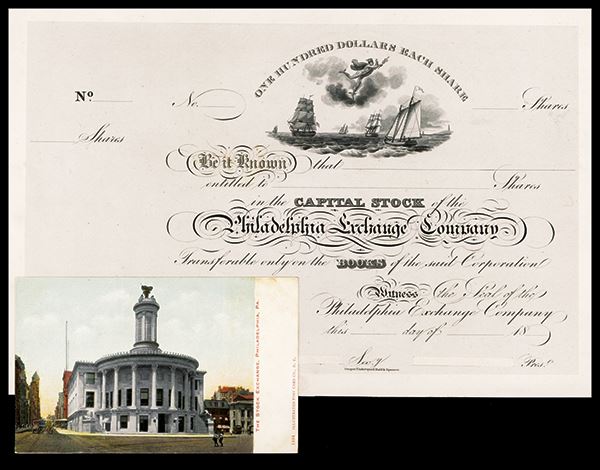 ONE HUNDRED DOLLARS EACH SHARE
No
No.
Shares
Shares
Be it Known that
entitled to Shares
in the CAPITAL STOCK of the
Philadelphia Exchange Company
Transferable only on the BOOKS of the said Corporation
Witness the Seal of the
Philadelphia Exchange Company
this day of 18
Secy. Pres.t
Draper Underwood Bald & Spencer
THE STOCK EXCHANGE, PHILADELPHIA, PA.